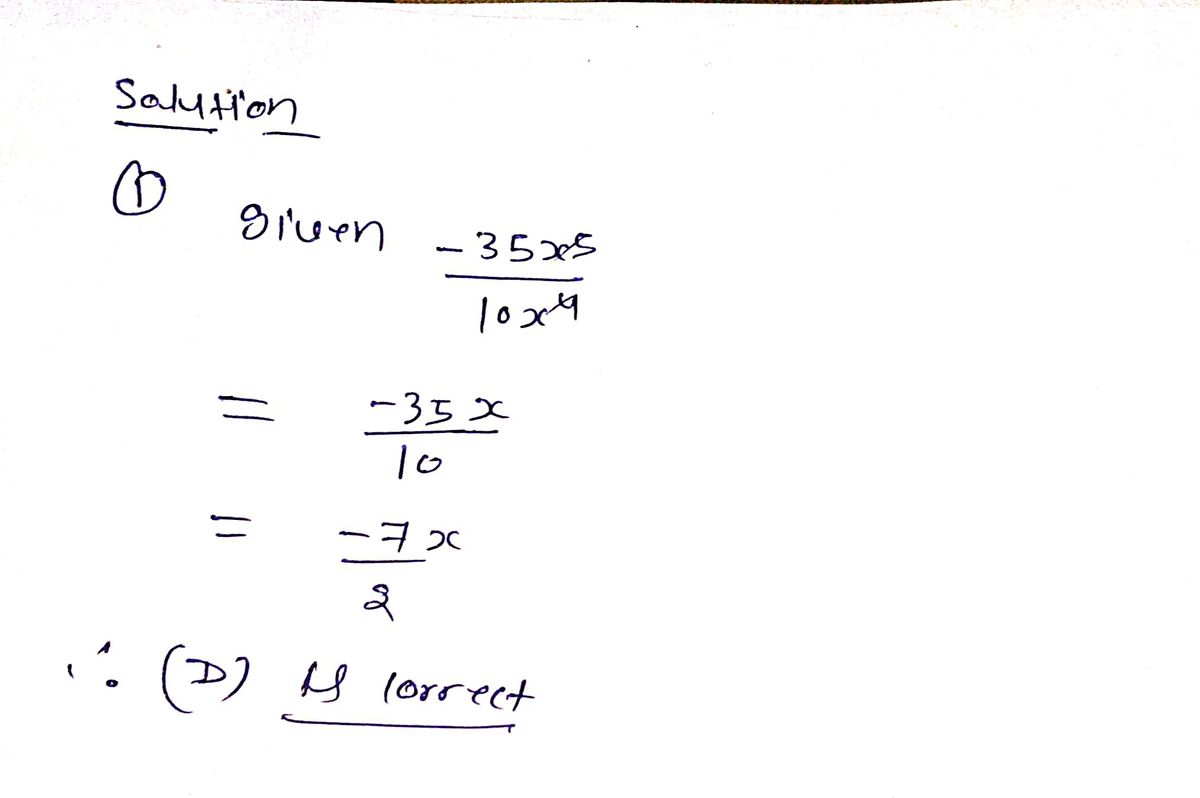 Solution
① given -35x⁵
10x⁴
= -35x
10
= -7x
2
∴ (D) is correct